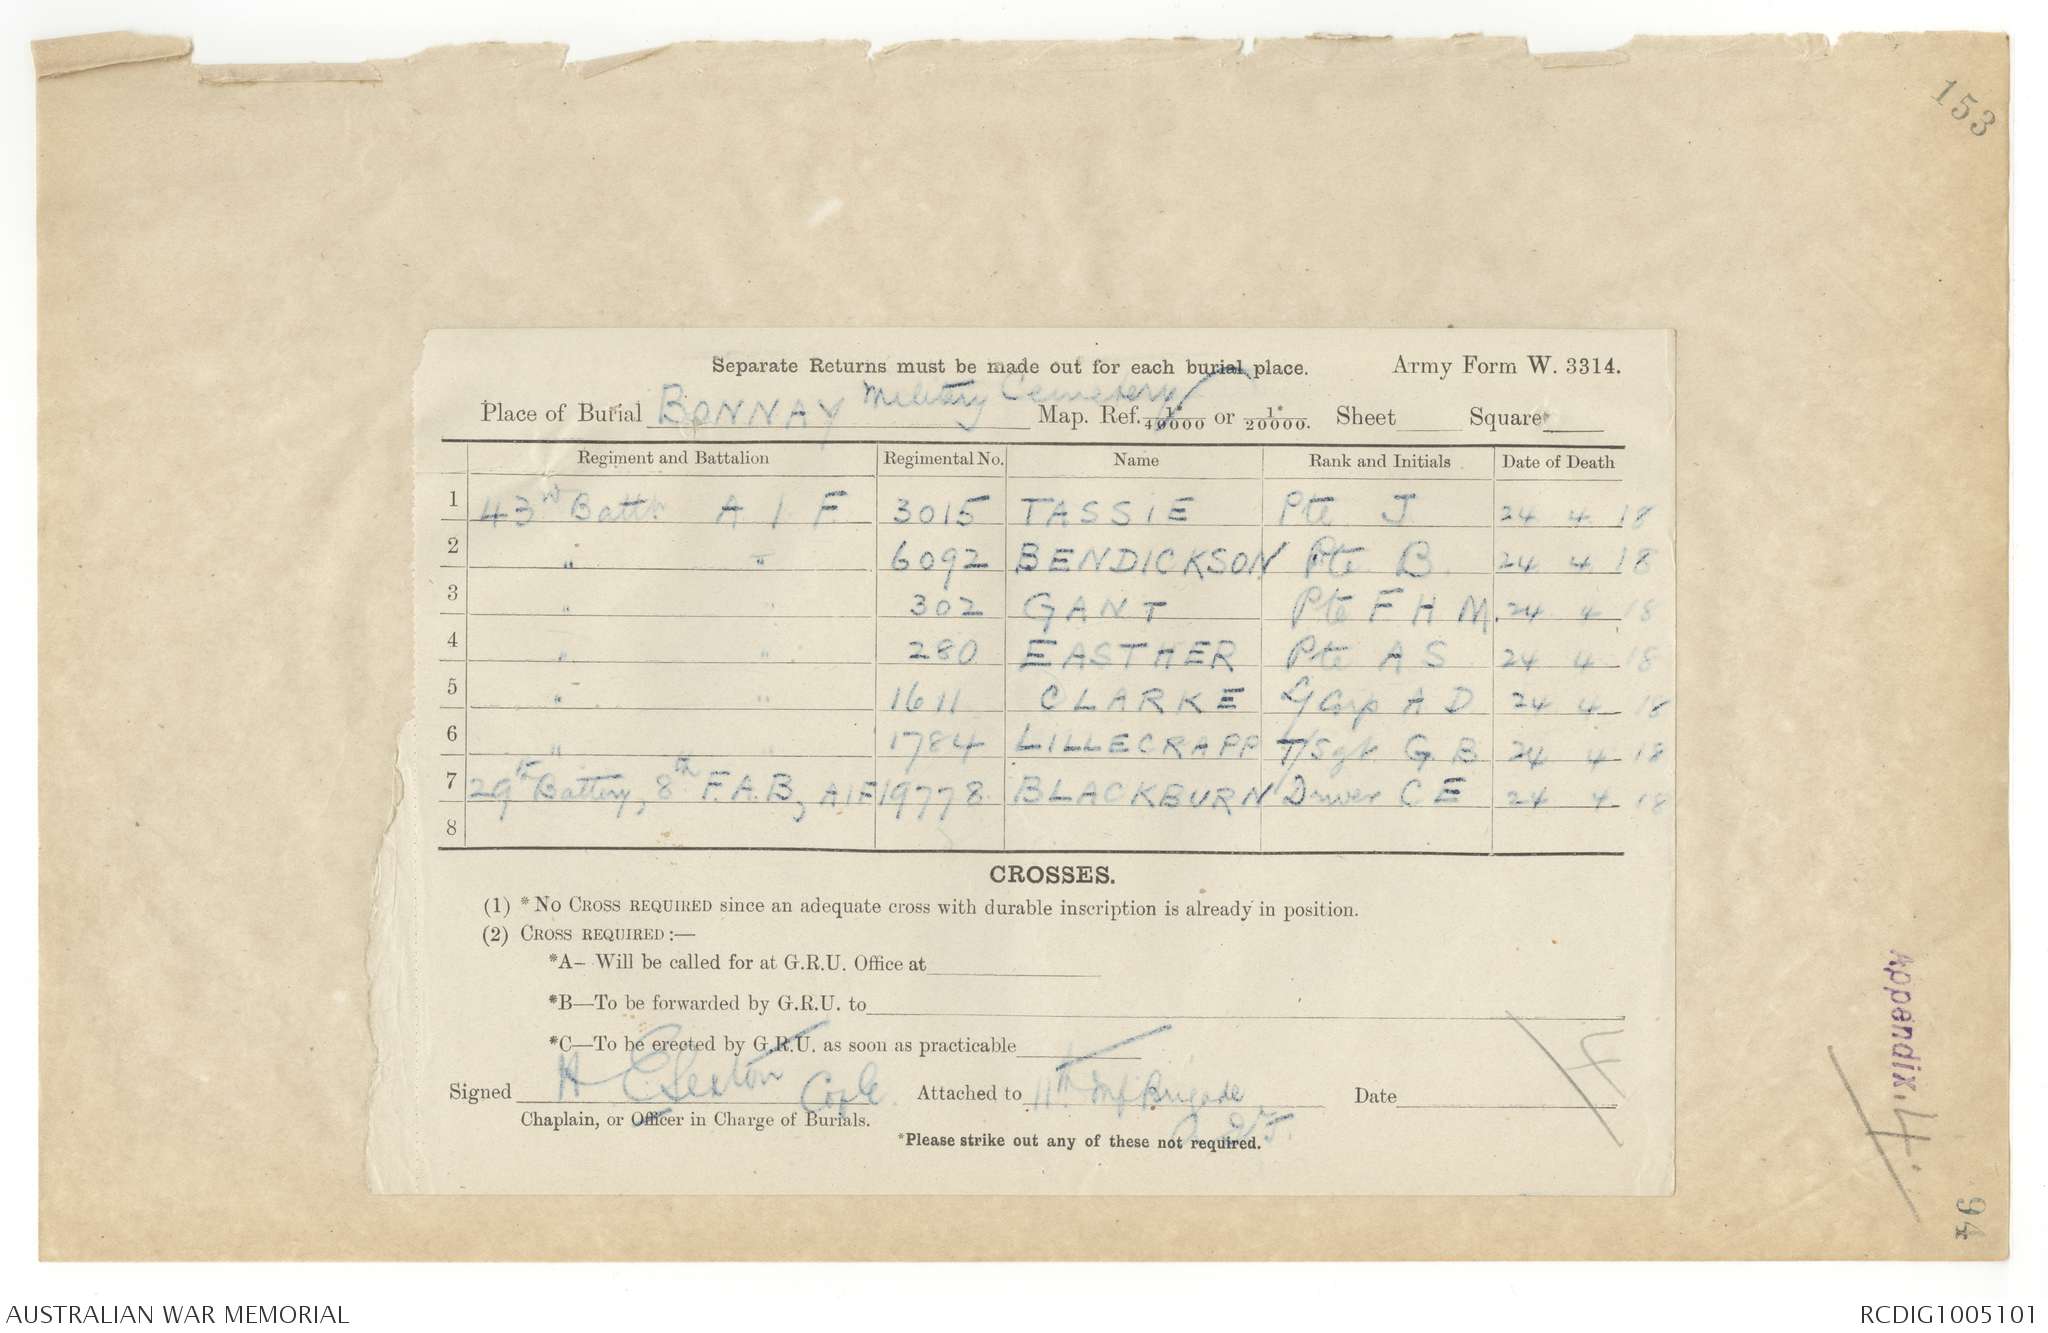 153
Separate Returns must be made out for each burial place. Army Form W. 3314.
Place of Burial BONNAY Military Cemetery Map. Ref. 1/40000 or 1/20000. Sheet Square
Regiment and Battalion Regimental No. Name Rank and Initials Date of Death
1 43rd Battn A I F 3015 TASSIE Pte J 24 4 18
2 " " 6092 BENDICKSON Pte B 24 4 18
3 " " 302 GANT Pte F H M. 24 4 18
4 " " 280 EASTHER Pte A S 24 4 18
5 " " 1611 CLARKE L/Corp A D 24 4 18
6 " " 1784 LILLECRAPP T/Sgt G B 24 4 18
7 29th Battery, 8th F.A.B, AIF 19778 BLACKBURN Driver C E 24 4 18
8
CROSSES.
(1) * NO CROSS REQUIRED since an adequate cross with durable inscription is already in position.
(2) CROSS REQUIRED :—
*A– Will be called for at G.R.U. Office at
*B—To be forwarded by G.R.U. to
*C—To be erected by G.R.U. as soon as practicable
Signed H E Sexton C of E. Attached to 11th Inf Brigade Date
A I F.
Chaplain, or Officer in Charge of Burials.
*Please strike out any of these not required.
4
Appendix. 4.
94
AUSTRALIAN WAR MEMORIAL RCDIG1005101